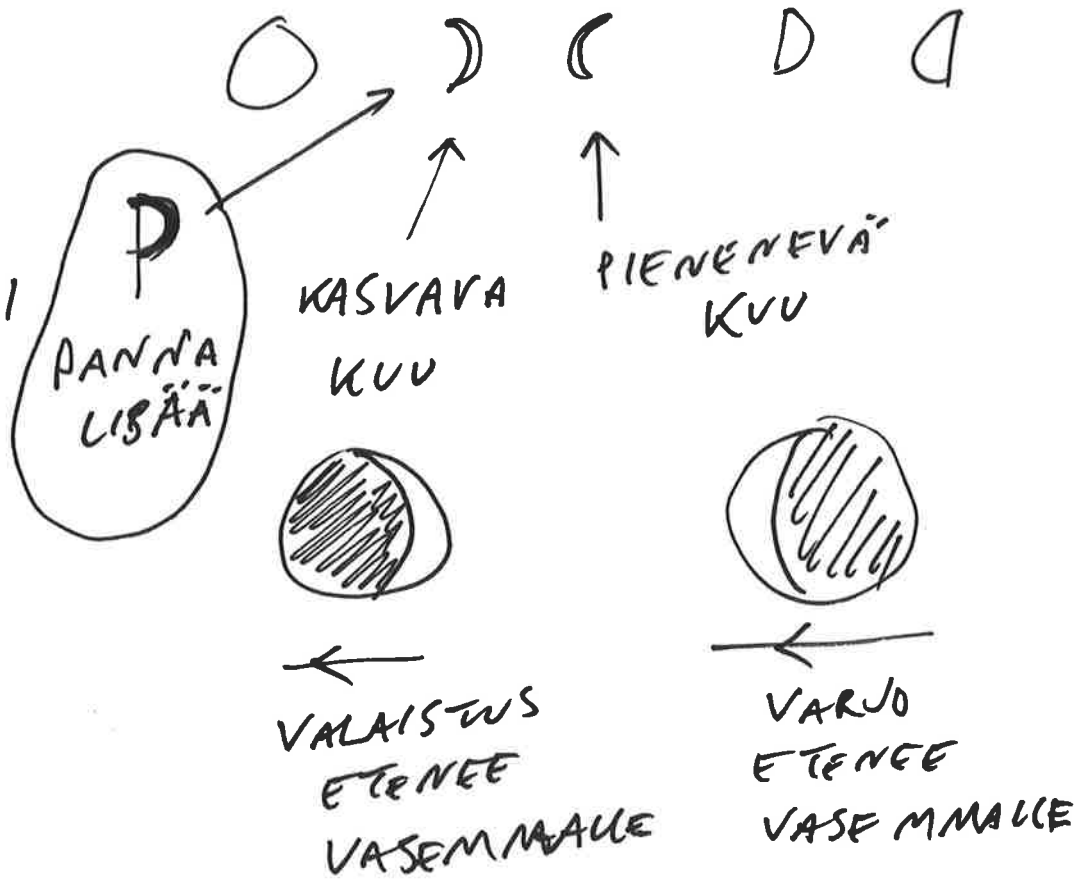 P
PANNA
LISÄÄ
KASVAVA
KUU
PIENENEVÄ
KUU
VALAISTUS
ETENEE
VASEMMALLE
VARJO
ETENEE
VASEMMALLE